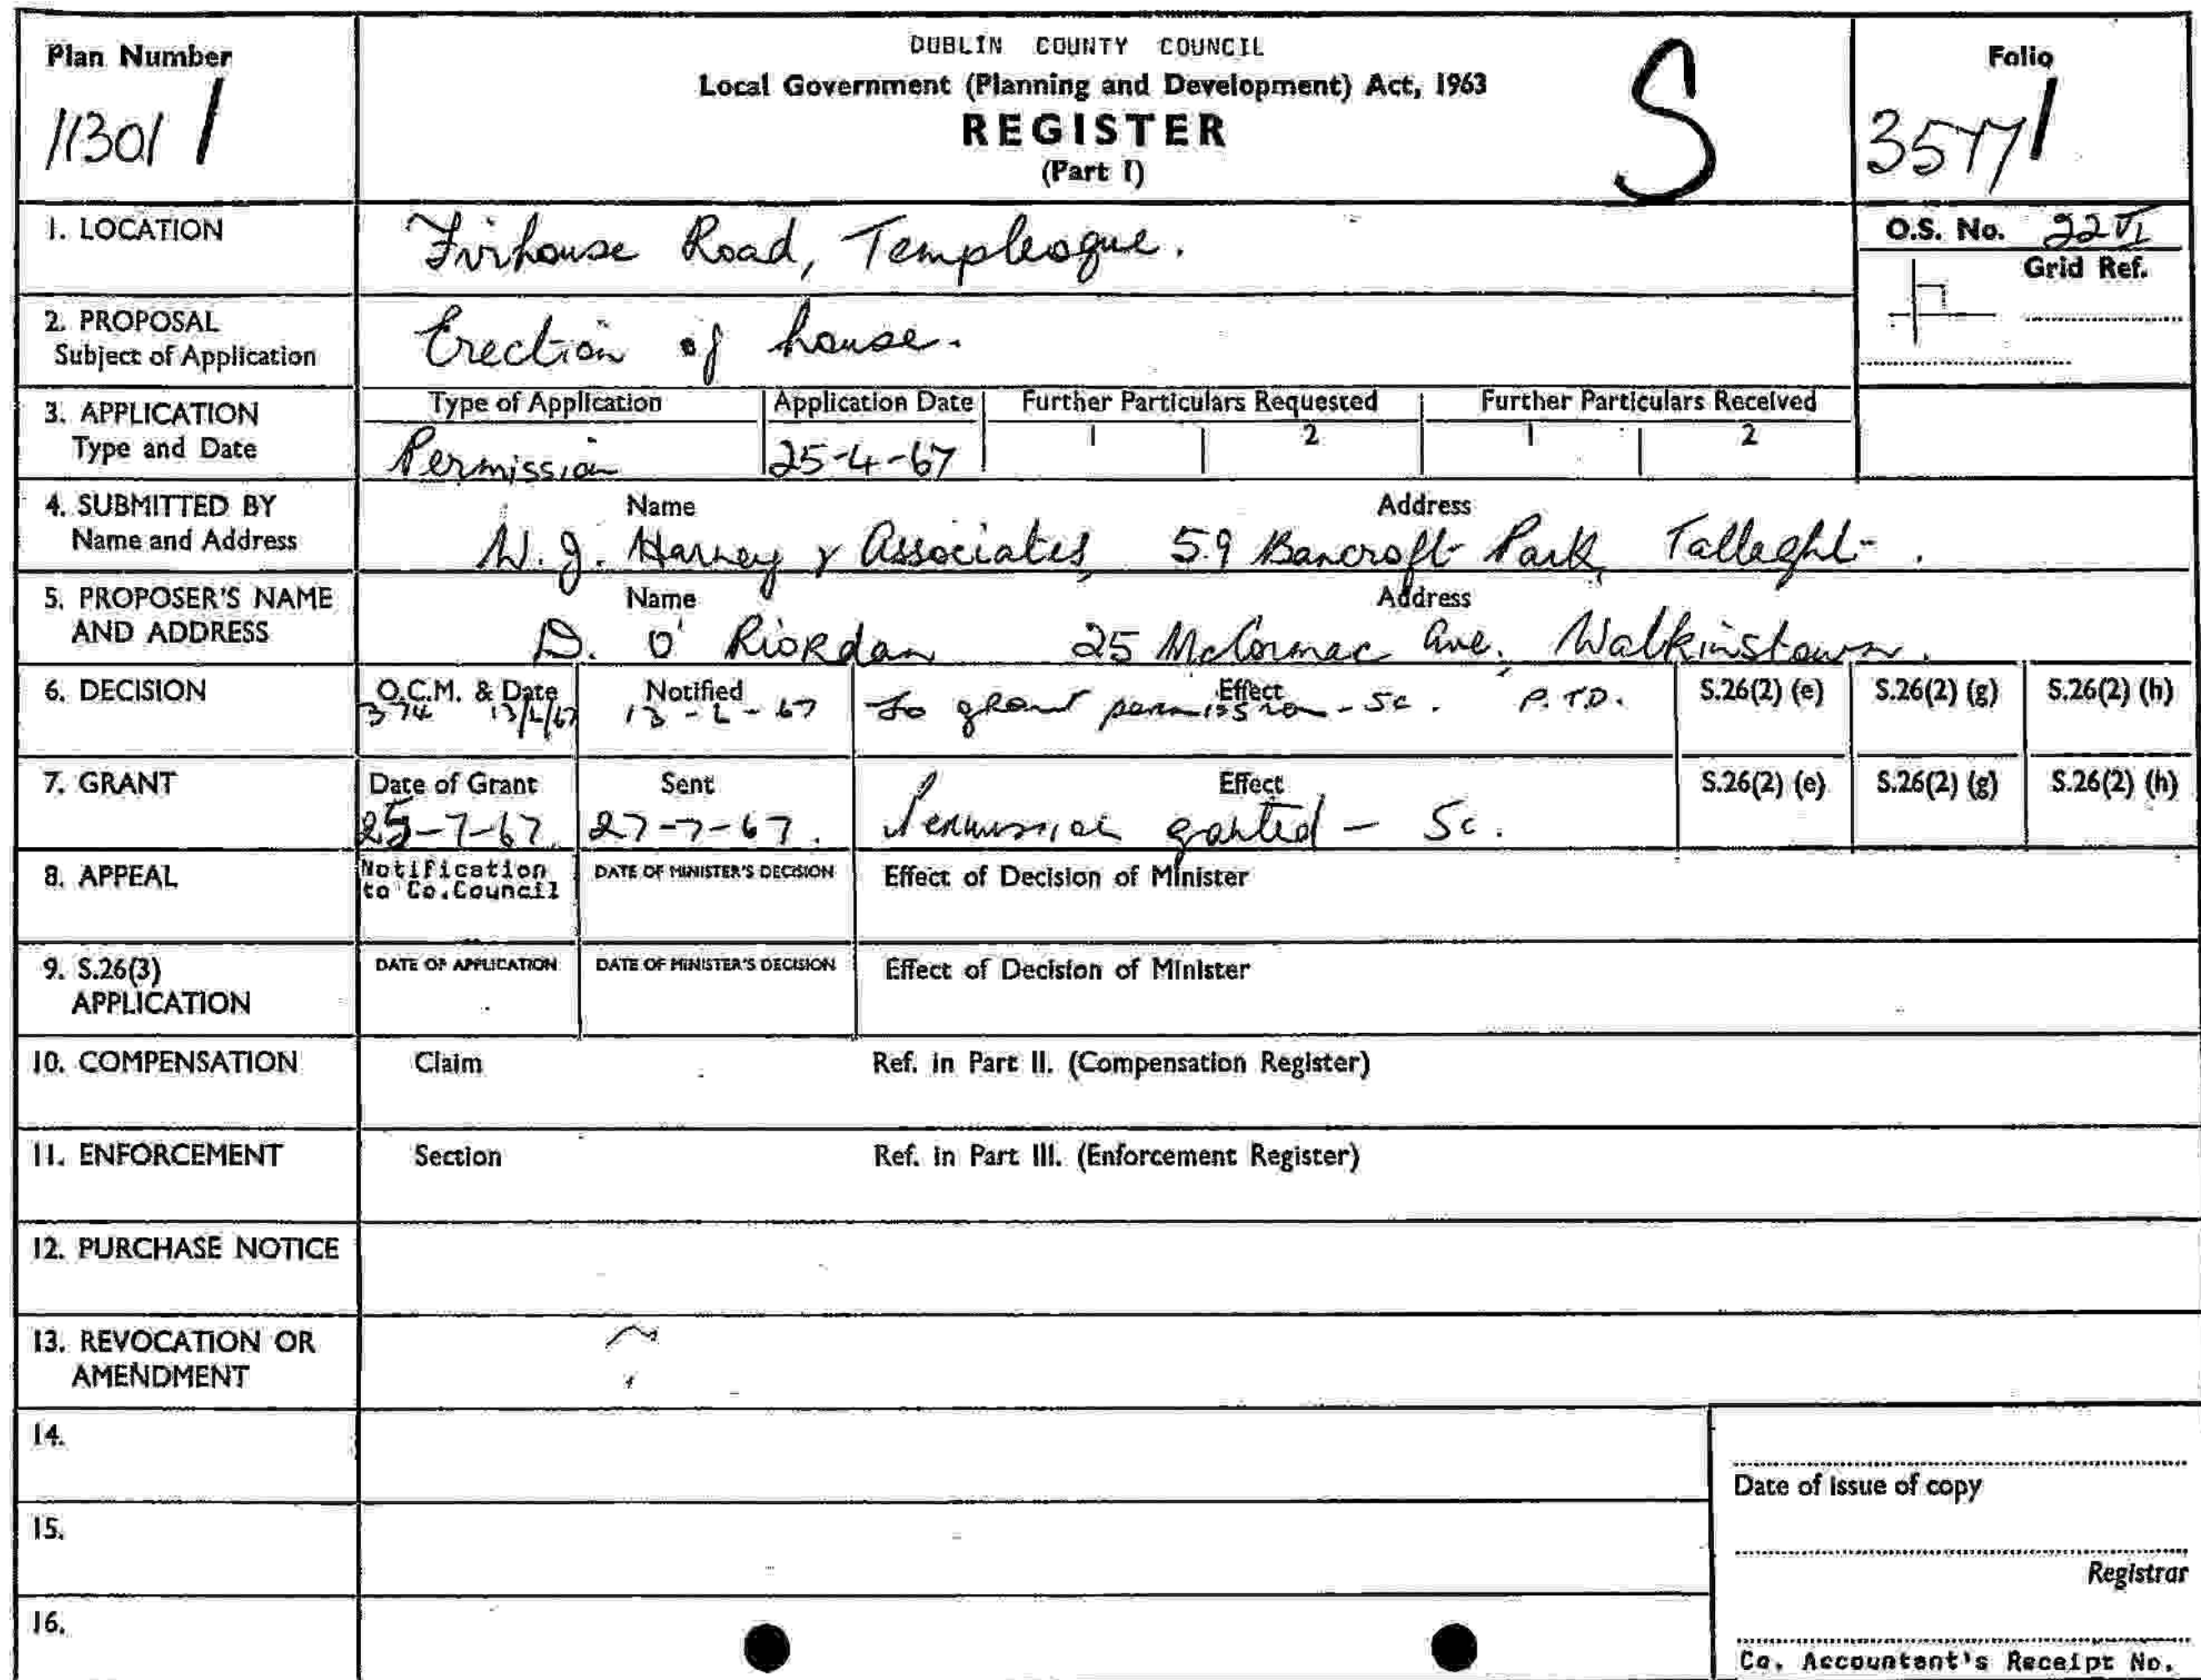 DUBLIN COUNTY COUNCIL
Local Government (Planning and Development) Act, 1963
REGISTER
(Part I)
S
Plan Number
11301 /
Folio
3577 /
1. LOCATION
Firhouse Road, Templeogue.
O.S. No. 22 VI
Grid Ref.
2. PROPOSAL
Subject of Application
Erection of house.
3. APPLICATION
Type and Date
Type of Application
Application Date
Further Particulars Requested
Further Particulars Received
1
2
1
2
Permission
25-4-67
4. SUBMITTED BY
Name and Address
Name
Address
W.J. Harney & Associates, 59 Bancroft Park, Tallaght.
5. PROPOSER'S NAME
AND ADDRESS
Name
Address
D. O'Riordan 25 McCormac Ave. Walkinstown.
6. DECISION
O.C.M. & Date
Notified
Effect
S.26(2) (e)
S.26(2) (g)
S.26(2) (h)
374 13/6/67
13-6-67
To grant permission - 5c. P.T.O.
7. GRANT
Date of Grant
Sent
Effect
S.26(2) (e)
S.26(2) (g)
S.26(2) (h)
25-7-67.
27-7-67.
Permission granted - 5c.
8. APPEAL
Notification
to Co.Council
DATE OF MINISTER'S DECISION
Effect of Decision of Minister
9. S.26(3)
APPLICATION
DATE OF APPLICATION
DATE OF MINISTER'S DECISION
Effect of Decision of Minister
10. COMPENSATION
Claim
Ref. in Part II. (Compensation Register)
11. ENFORCEMENT
Section
Ref. in Part III. (Enforcement Register)
12. PURCHASE NOTICE
13. REVOCATION OR
AMENDMENT
14.
15.
16.
Date of issue of copy
Registrar
Co. Accountant's Receipt No.